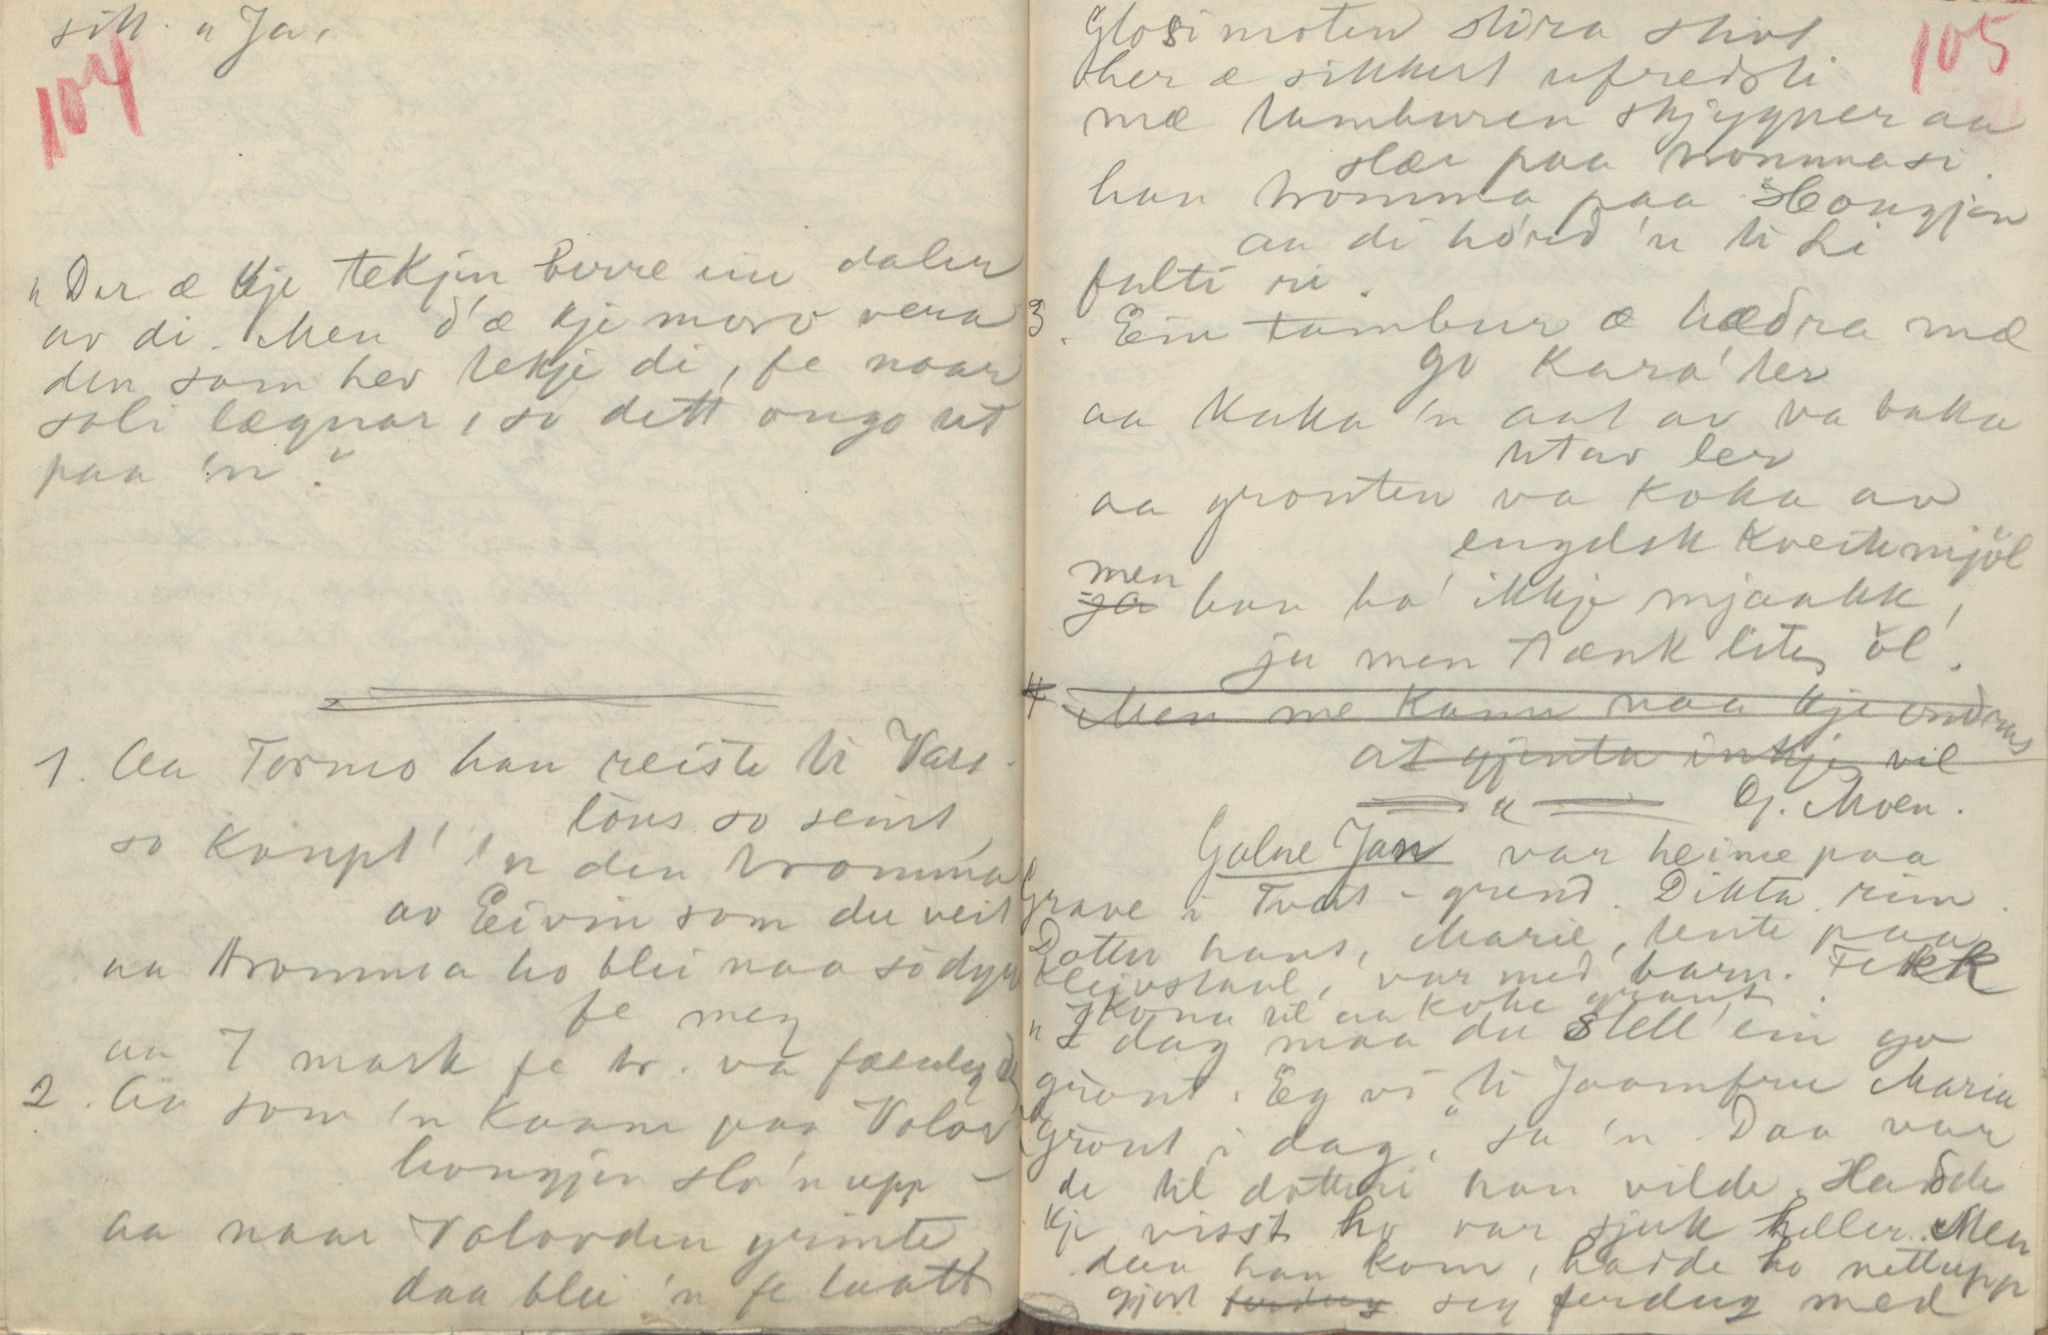 sitt. "Ja,
104
"Der æ kje tekjen berre ein daler
av di. Men d'æ kje moro vera
den som hev tekje di, fe naar
soli lægnar, so dett ongo ut
paa 'n."
1. Aa Tormo han reiste ti Vass-
tons so seint
so kaupt' 'n den tromma
av Eivin som du veit
aa tromma ho blei naa so dyr
fe meg
aa 7 mark fe tr. va
2. Aa som 'n kaam paa Valar
haugjen slo 'n upp -
aa naar Valarden grinte
daa blei 'n fe laatt
105
Glosimoten stira stivt
her æ sikkert ufredsti
mæ tamburen skjygner aa
slær paa trommasi.
han tromma paa Haugjen
aa di hörd 'n ti Li
fulti ri.
3. Ein tambur æ hædra mæ
go kara'ter
aa kaka 'n aat av va baka
utav ler
aa grauten va koka av
engelsk kveitemjöl
men
ja han ha' ikkje mjaakk,
ja men tænk liteg öl!
4 Men me kann naa kje undras
at gjenta inkje vil
" G. Moen.
Galne Jan var heime paa
Grave i Tveit-grend. Dikta rim.
Dotter hans, Marie, tente paa
Kleivstaul, var med barn. Fekk
kona til aa koke graut.
"I dag maa du stell' ein go
graut. Eg vi ti Jaamfru Maria
Graut i dag," sa 'n. Daa var
de til dotteri han vilde. Hadde
kje visst ho var sjuk heller. Men
daa han kom, hadde ho nettupp
gjort ferdug seg ferdug med